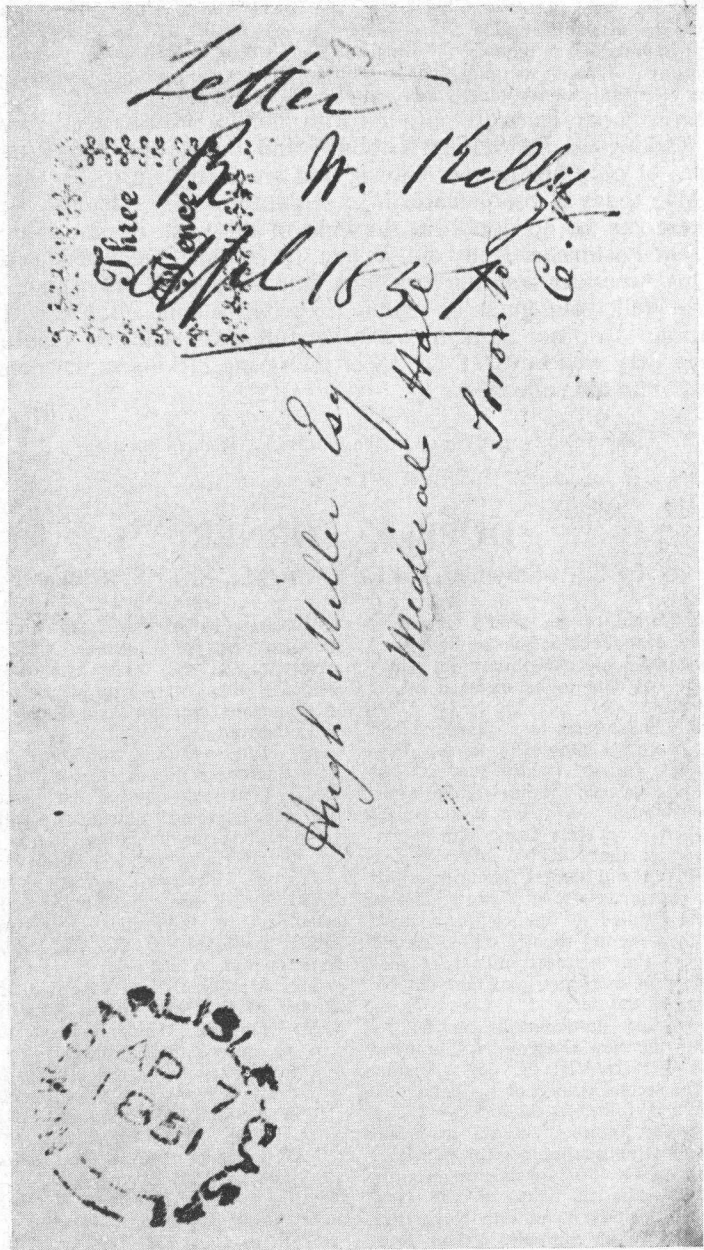 Letter
R. W. Kelly
Apl 1851
Three
Pence.
Hugh Miller Esq
Medical Hall
Toronto
CARLISLE
AP 7
1851